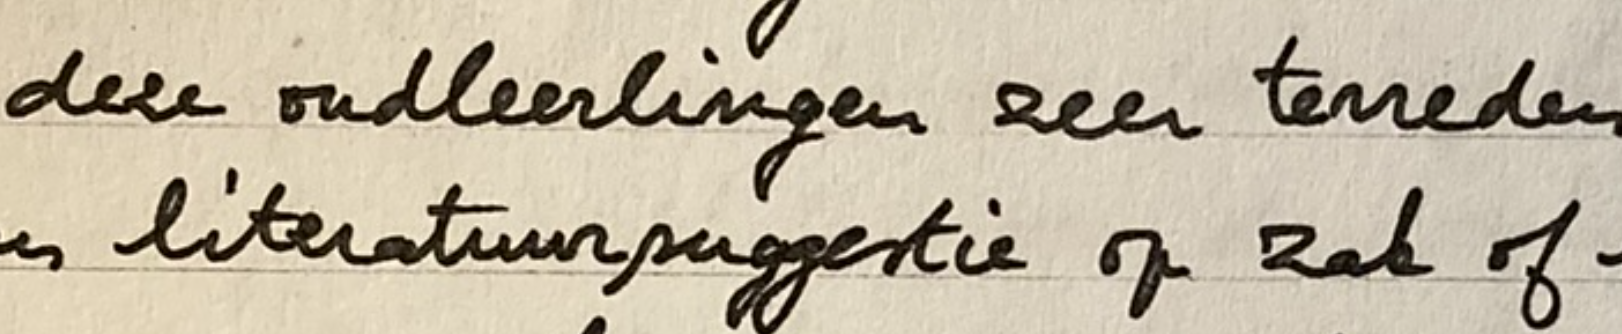 deze oudleerlingen zeer tevreden
literatuursuggestie op zak of